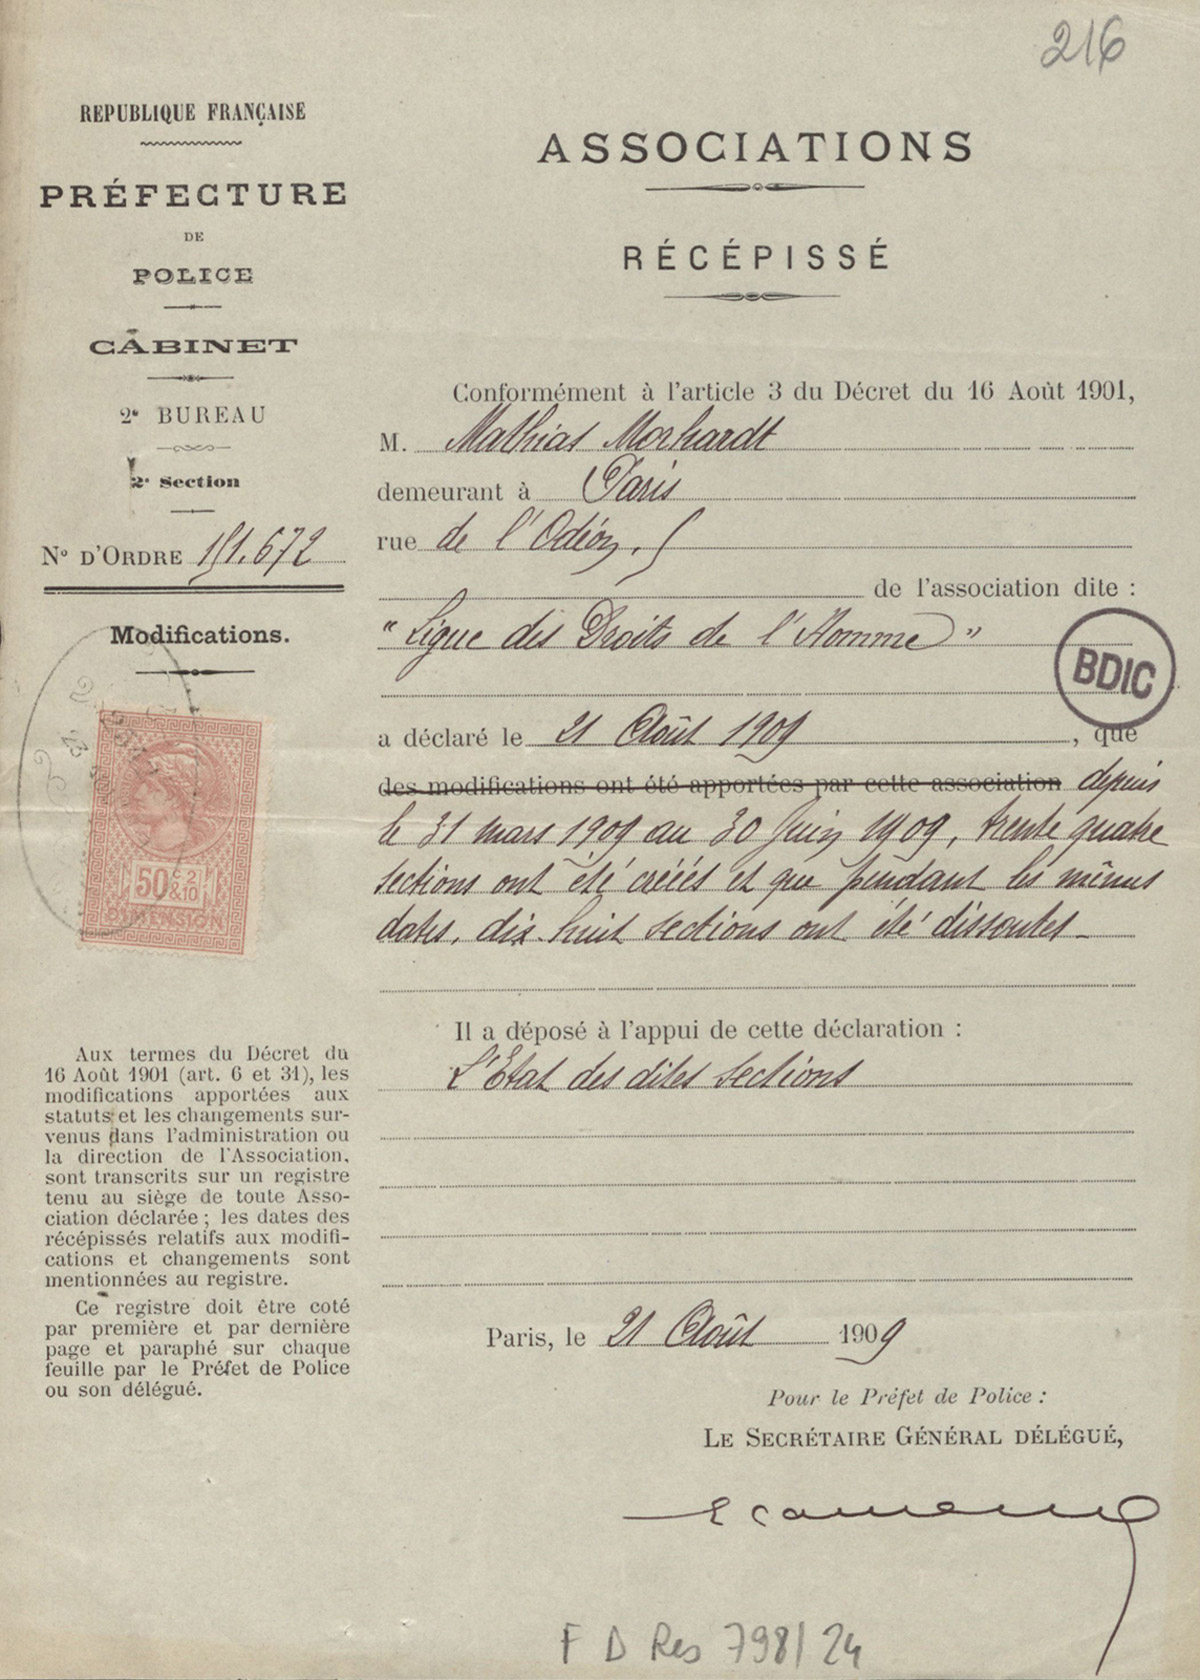 216
REPUBLIQUE FRANÇAISE
PRÉFECTURE
DE
POLICE
CABINET
2e BUREAU
2e Section
No D'ORDRE 151.672
Modifications.
50 c 2 & 10
DIMENSION
Aux termes du Décret du
16 Août 1901 (art. 6 et 31), les
modifications apportées aux
statuts et les changements sur-
venus dans l'administration ou
la direction de l'Association,
sont transcrits sur un registre
tenu au siège de toute Asso-
ciation déclarée ; les dates des
récépissés relatifs aux modifi-
cations et changements sont
mentionnées au registre.
Ce registre doit être coté
par première et par dernière
page et paraphé sur chaque
feuille par le Préfet de Police
ou son délégué.
ASSOCIATIONS
RÉCÉPISSÉ
Conformément à l'article 3 du Décret du 16 Août 1901,
M. Mathias Morhardt
demeurant à Paris
rue de l'Odéon, 5
de l'association dite :
"Ligue des Droits de l'Homme"
BDIC
a déclaré le 21 Août 1909, que
des modifications ont été apportées par cette association depuis
le 31 mars 1909 au 30 Juin 1909, trente quatre
sections ont été créées et que pendant les mêmes
dates, dix-huit sections ont été dissoutes_
Il a déposé à l'appui de cette déclaration :
L'Etat des dites sections
Paris, le 21 Août 1909
Pour le Préfet de Police :
LE SECRÉTAIRE GÉNÉRAL DÉLÉGUÉ,
F D Res 798/24